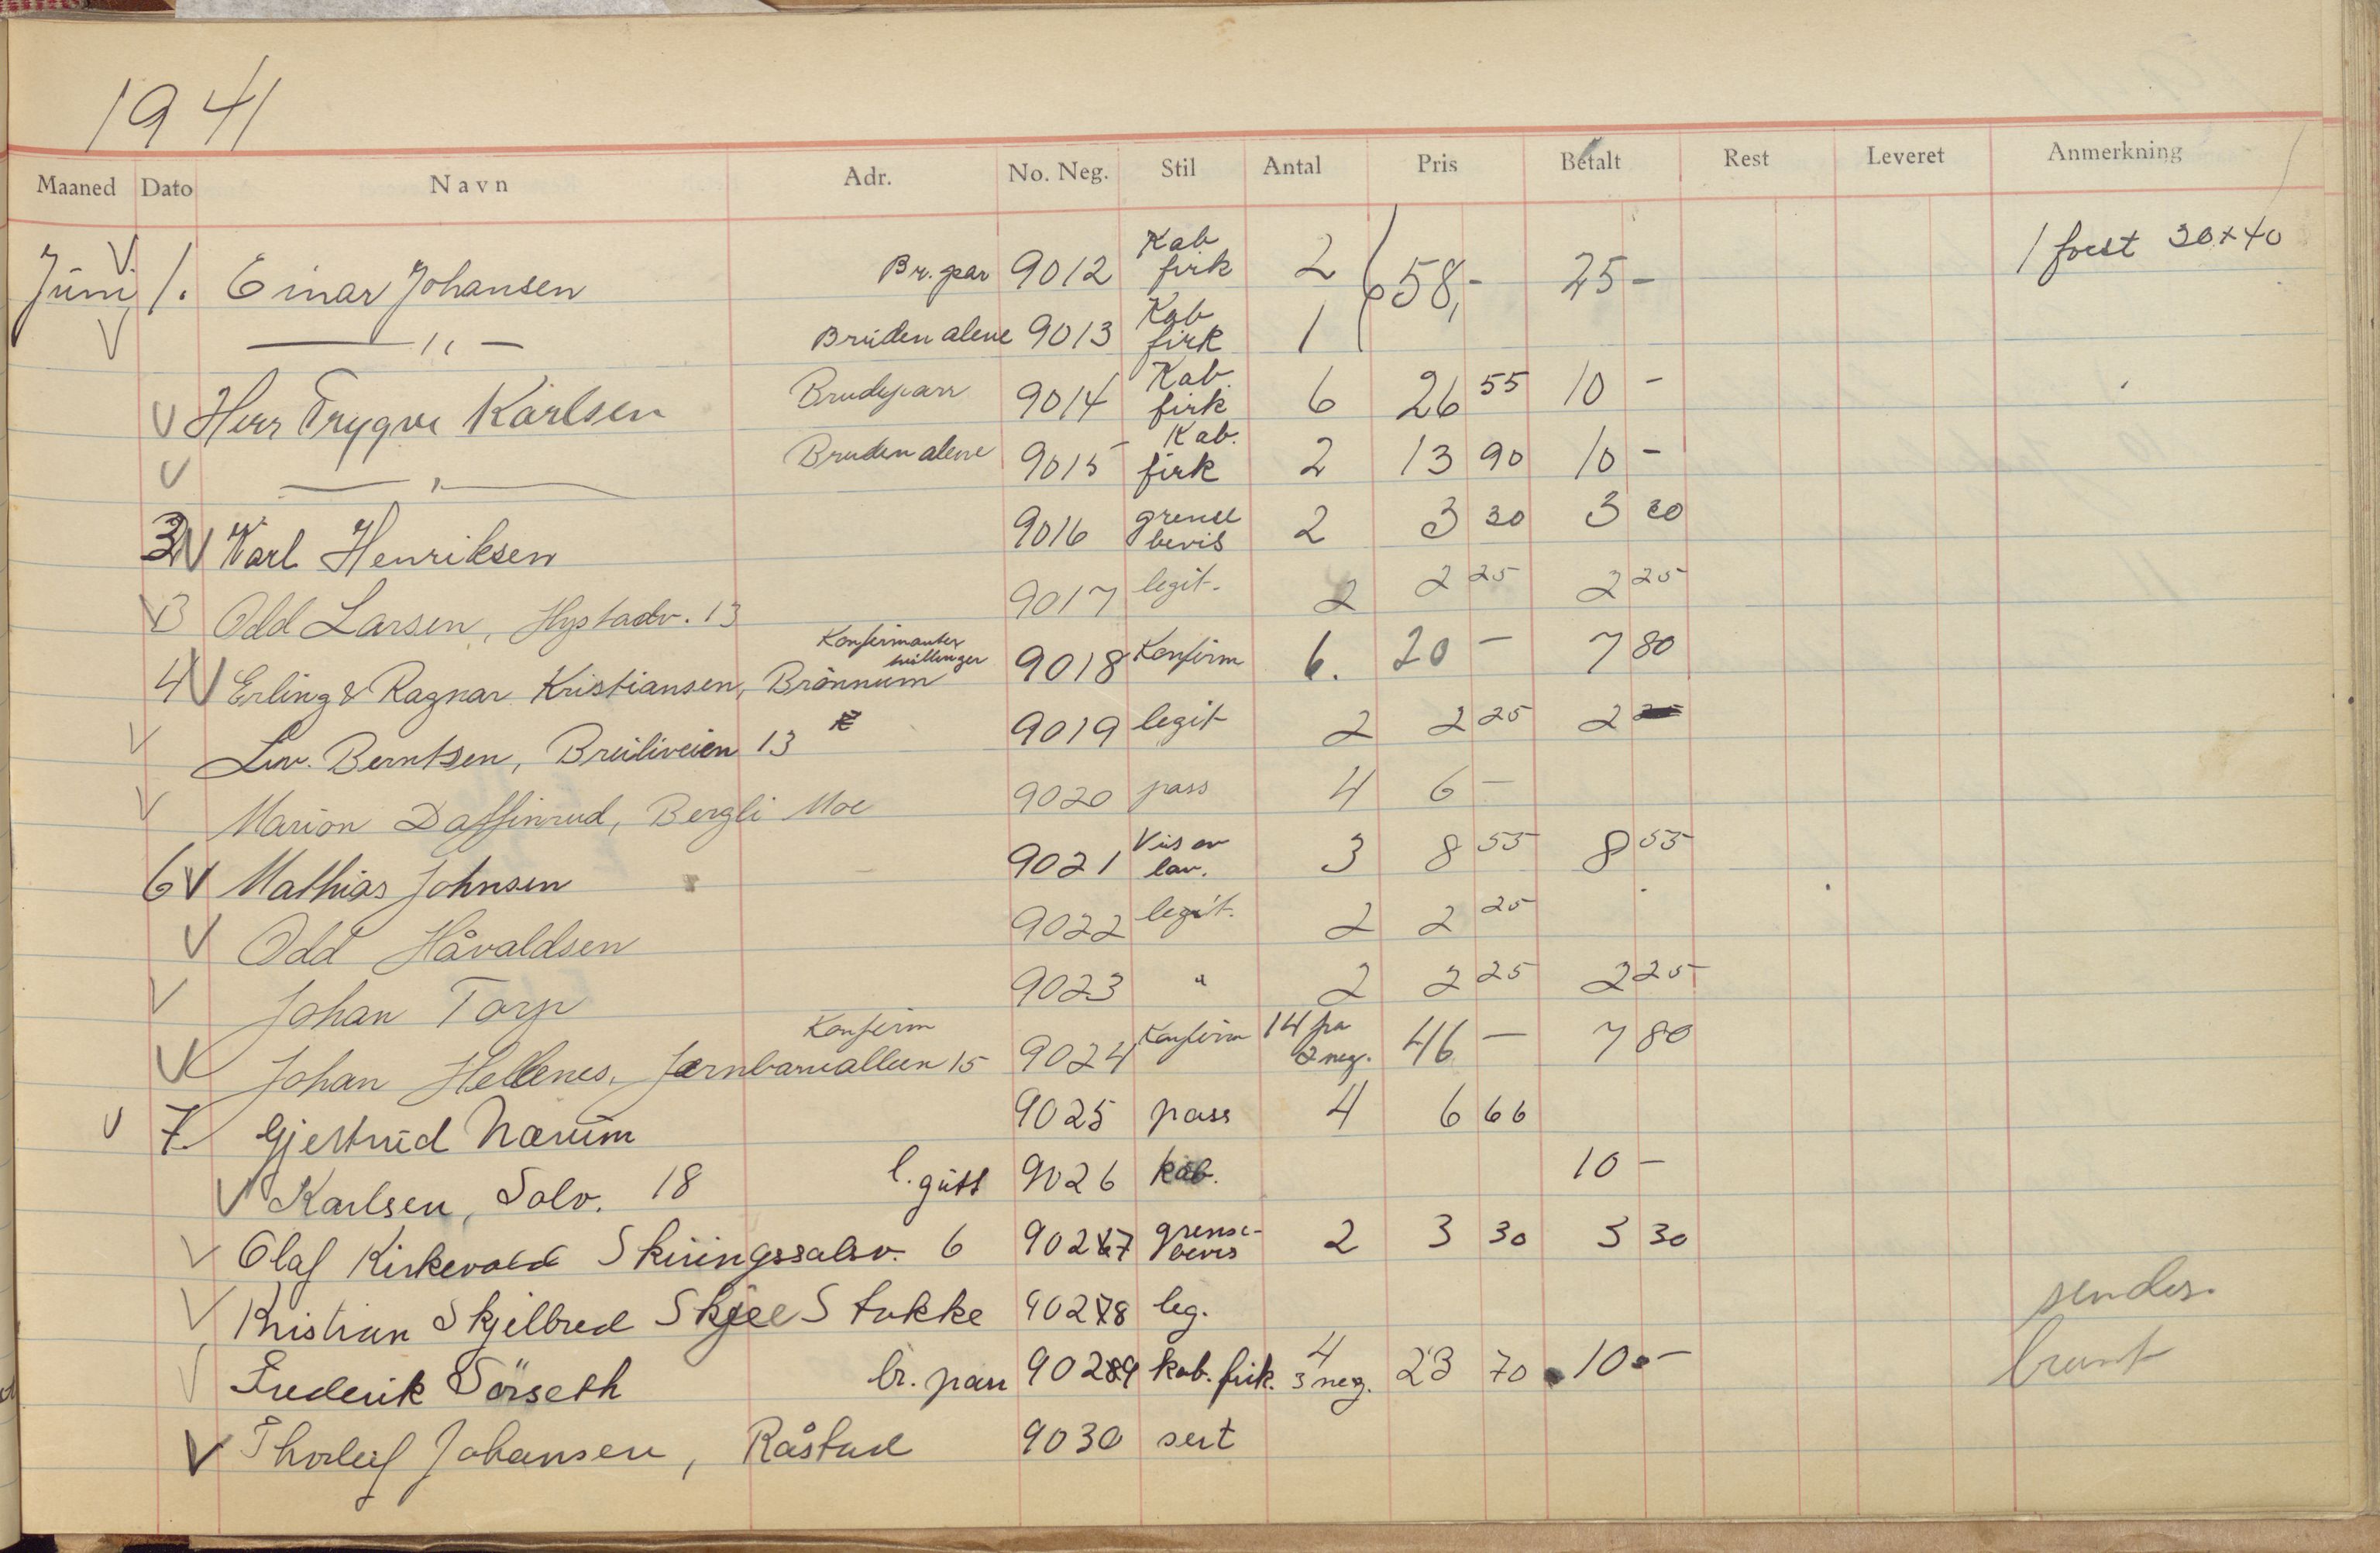 1941
Maaned Dato Navn Adr. No. Neg. Stil Antal Pris Betalt Rest Leveret Anmerkning
Juni V 1. Einar Johansen Br. par 9012 Kab firk 2 58,- 25 - 1 forst 30x40
V — " — Bruden alene 9013 Kab firk 1
V Herr Trygve Karlsen Brudeparr 9014 Kab. firk 6 26 55 10 -
V — " — Bruden alene 9015 Kab. firk 2 13 90 10 -
3 V Karl Henriksen 9016 grense bevis 2 3 30 3 30
V 3 Odd Larsen, Hystadv. 13 9017 legit. 2 2 25 2 25
4 V Erling & Ragnar Kristiansen, Brönnum Konfirmanter tvillinger 9018 Konfirm 6. 20 - 7 80
V Liv. Berntsen, Breiliveien 13 9019 legit 2 2 25 2
V Marion Daffinrud, Bergli Moe 9020 pass 4 6 -
6 V Mathias Johnsen 9021 Vis av lav. 3 8 55 8 55
V Odd Håvaldsen 9022 legit. 2 2 25
V Johan Torp 9023 " 2 2 25 2 25
V Johan Hellenes, Jernbanealleen 15 Konfirm 9024 Konfirm 14 fra 2 neg. 46 - 7 80
V 7. Gjertrud Narum 9025 pass 4 6 66
V Karlsen, Solv. 18 l. gutt 9026 kab. 10 -
V Olaf Kirkevold Skiringssalsv. 6 9027 grense- bevis 2 3 30 3 30
V Kristian Skjelbred Skjee Stokke 9028 leg. sendes.
V Frederik Sörseth br. parr 9029 kab. firk. 4 3 neg. 23 70 10 - brunt
V Thorleif Johansen, Råstad 9030 sert